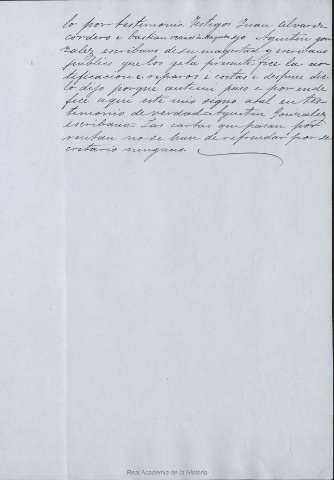 lo por testimonio testigos Juan Alvarez
cordero e bastian
Agustin gon
zalez escribano de su magestad y escribano
publico que los
la presente fize la no
tificacion e reparos e costas e despues de
lo dijo porque ante mi paso e por ende
fice aqui este mio signo atal en tes
timonio de verdad = Agustin Gonzalez
escribano = Las cartas que pasan por
ventura no se han de refrendar por se
cretario ninguno
Real Academia de la Historia